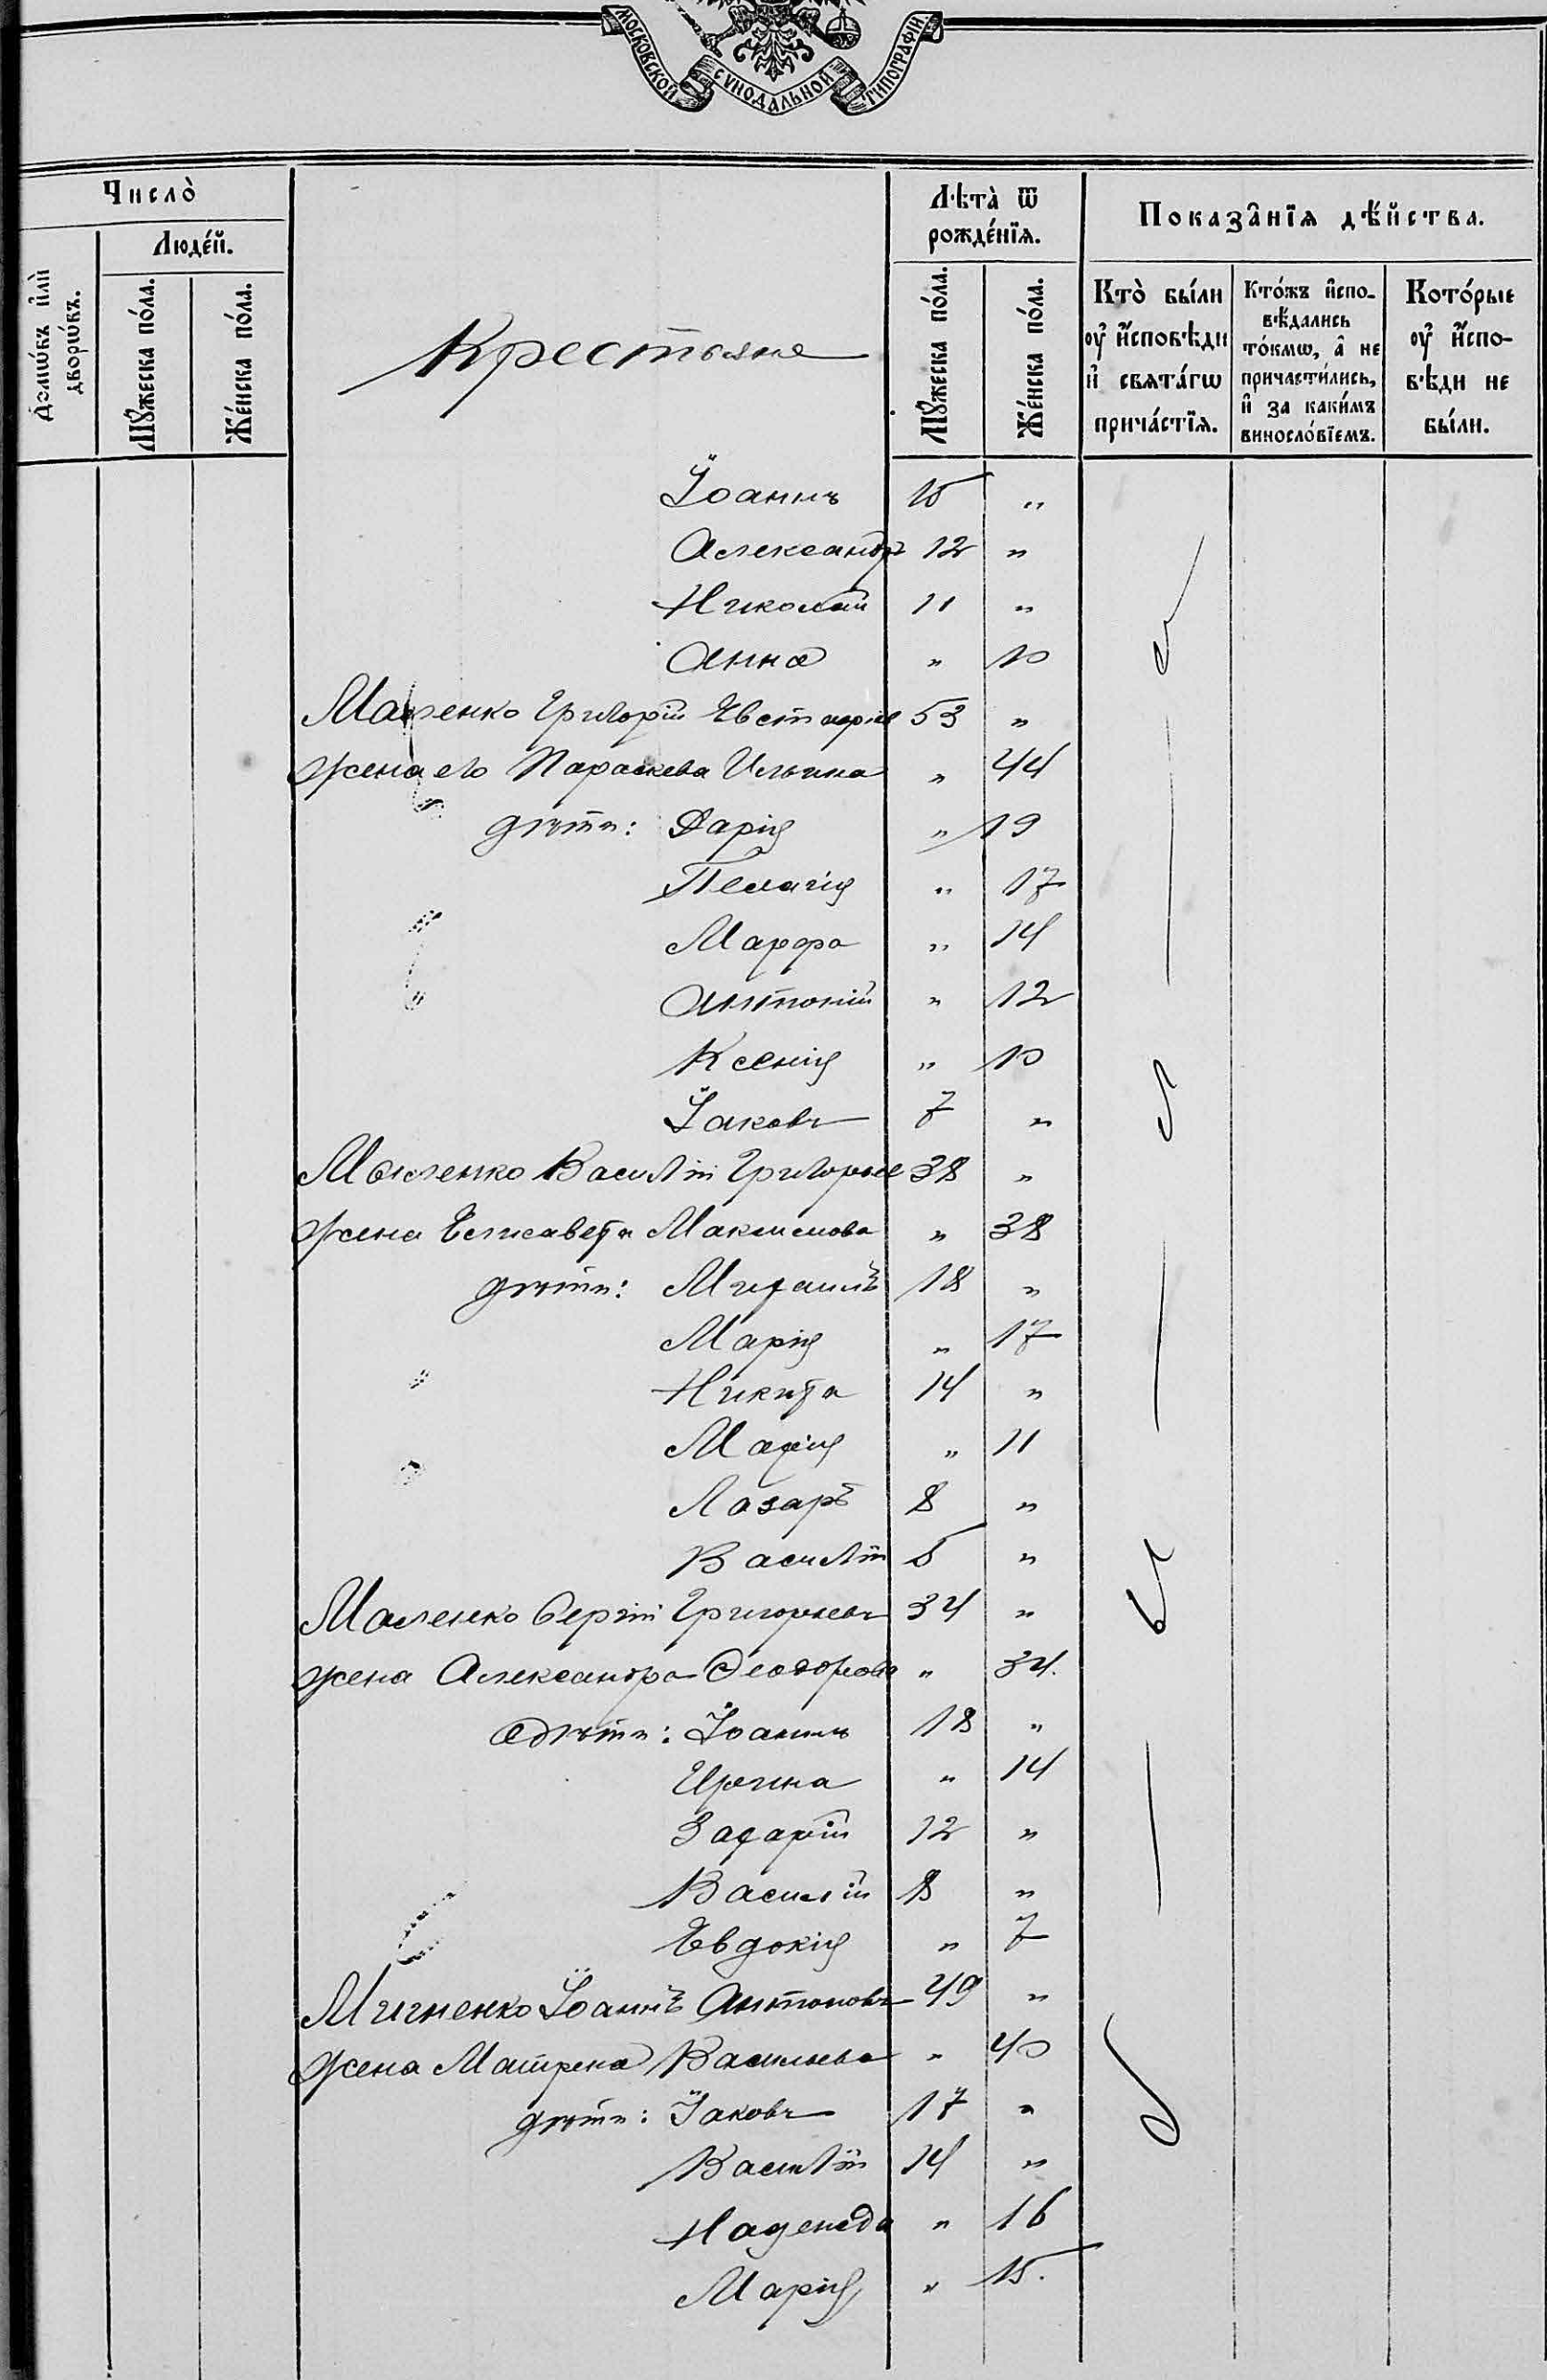 МОСКОВСКОЙ СѴНОДАЛЬНОЙ ТИПОГРАФІИ
Число̀
Людéй.
Домѡ́въ и҆лѝ дворѡ́въ.
Мꙋ́жеска по́ла.
Же́нска по́ла.
Крестьяне
Лѣта̀ ѿ рожде́нїѧ.
Мꙋ́жеска по́ла.
Же́нска по́ла.
Показа̑нїѧ дѣ́йства.
Кто̀ бы́ли оу҆ и҆́сповѣди и҆ свѧта́гѡ прича́стїѧ.
Кто́жъ и҆спо-вѣ́дались то́кмѡ, а҆ не причасти́лись, и҆ за каки́мъ винослóвїемъ.
Кото́рые оу҆ и҆́спо-вѣди не бы́ли.
Іоаннъ 15 „
Александръ 12 „
Николай 11 „
Анна „ 10
Маленко Григорій 53 „
жена его Параскева Ильина „ 44
дѣти: Дарія „ 19
Пелагія „ 17
Марфа „ 14
Антоній „ 12
Ксенія „ 10
Іаковъ 7 „
Маленко Василій Григорьев 38 „
жена Елисавета Максимова „ 38
дѣти: Михаилъ 18 „
Марія „ 17
Никита 14 „
Марія „ 11
Лазаръ 8 „
Василій 5 „
Маленко Сергій Григорьевъ 34 „
жена Александра Феодорова „ 34.
дѣти: Іоаннъ 18 „
Ирина „ 14
Захарій 12 „
Василій 8 „
Евдокія „ 7
Мигненко Іоаннъ Антоновъ 49 „
жена Матрена Васильева „ 40
дѣти: Іаковъ 17 „
Василій 14 „
Надежда „ 16
Марія „ 15.